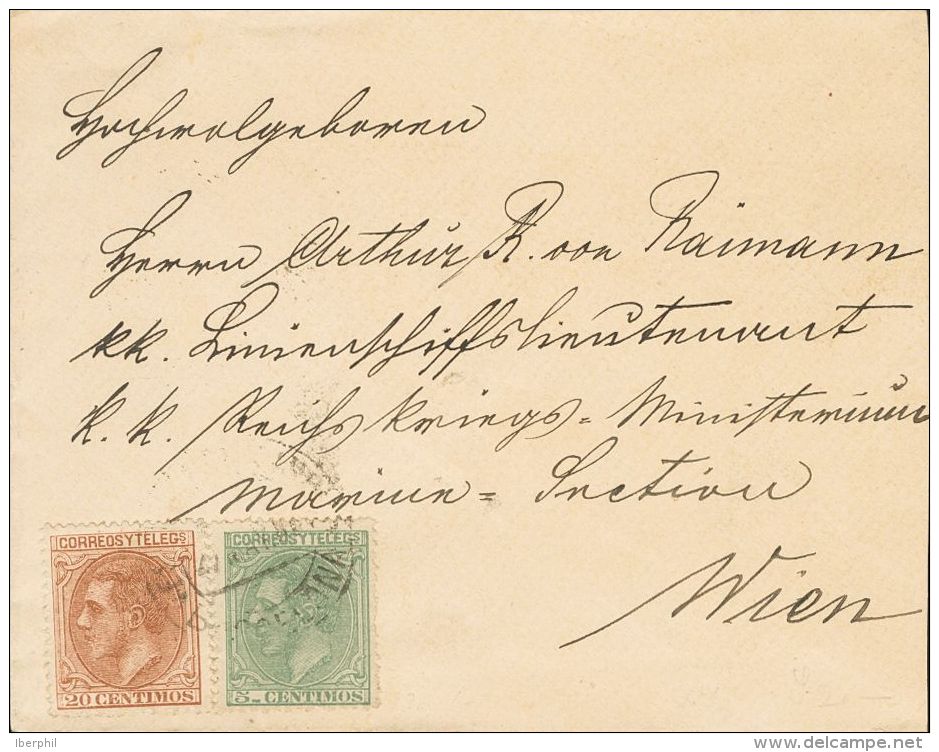 Hochwolgeboren
Herrn Arthur R. von Raimann
k k. Linienschiffslieutenant
k. k. Reichs Kriegs = Ministerium
Marine = Section
Wien
CORREOS Y TELEGS
20 CENTIMOS
CORREOS Y TELEGS
5 CENTIMOS
Iberphil
delcampe.net